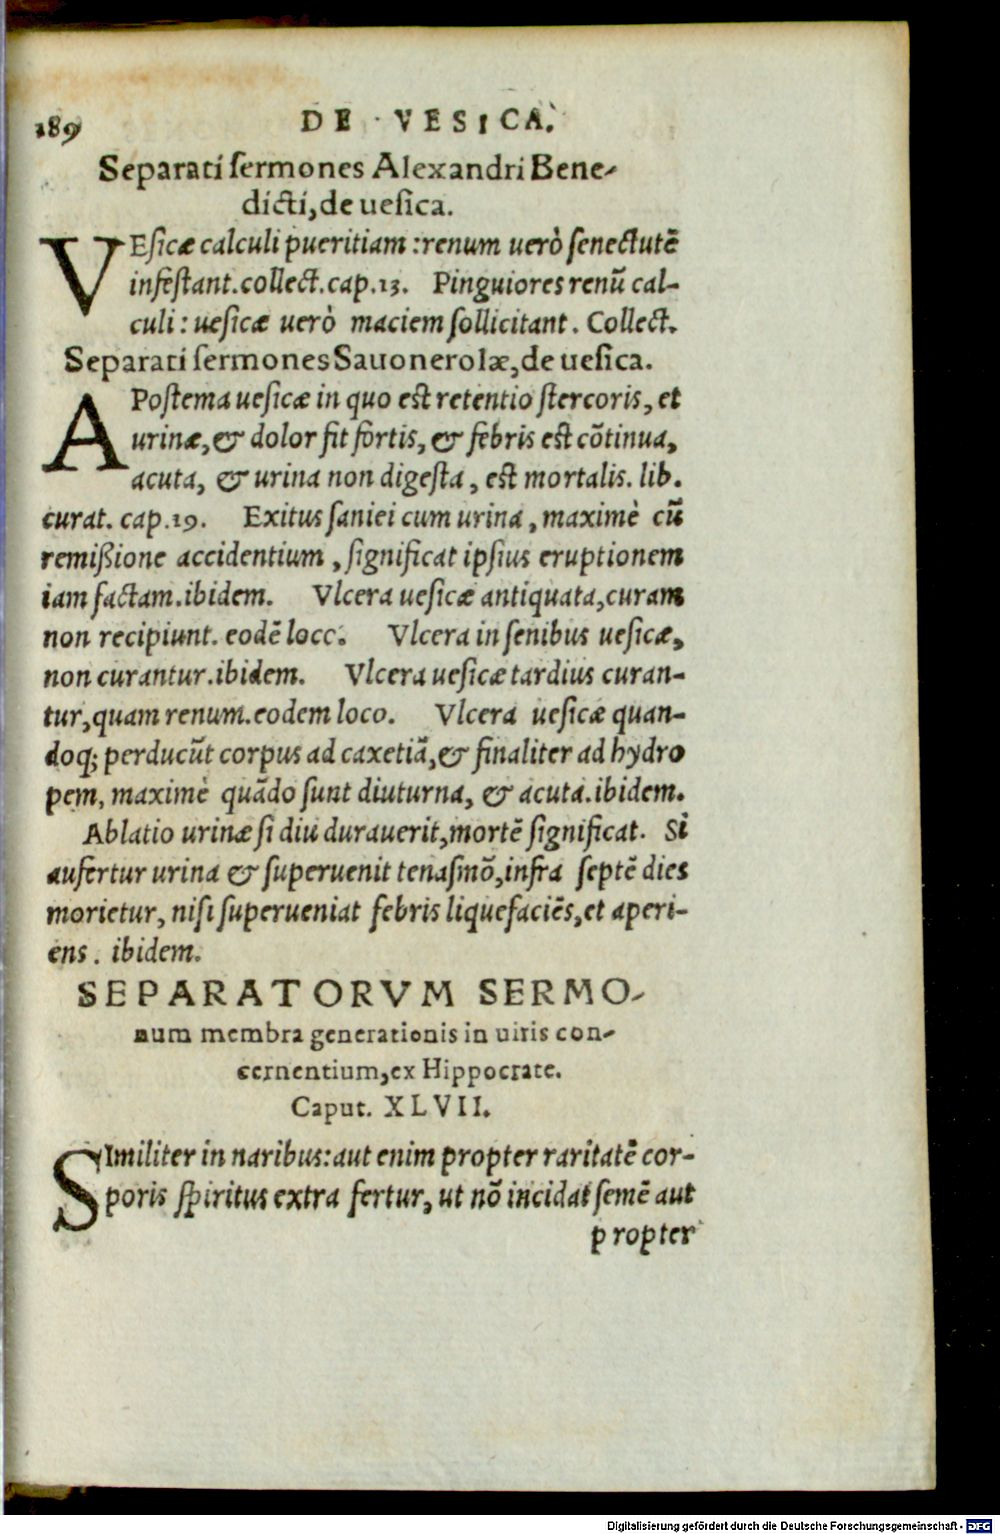 189 DE VESICA.
Separati sermones Alexandri Bene-
dicti, de uesica.
VEsicæ calculi pueritiam : renum uerò senectutē
infestant. collect. cap. 13. Pinguiores renū cal-
culi : uesicæ uerò maciem sollicitant. Collect.
Separati sermones Sauonerolæ, de uesica.
APostema uesicæ in quo est retentio stercoris, et
urinæ, & dolor fit fortis, & febris est cōtinua,
acuta, & urina non digesta, est mortalis. lib.
curat. cap. 19. Exitus saniei cum urina, maximè cū
remißione accidentium, significat ipsius eruptionem
iam factam. ibidem. Vlcera uesicæ antiquata, curam
non recipiunt. eodē loco. Vlcera in senibus uesicæ,
non curantur. ibidem. Vlcera uesicæ tardius curan-
tur, quam renum. eodem loco. Vlcera uesicæ quan-
doq; perducūt corpus ad caxetiā, & finaliter ad hydro
pem, maximè quādo sunt diuturna, & acuta. ibidem.
Ablatio urinæ si diu durauerit, mortē significat. Si
aufertur urina & superuenit tenasmō, infra septē dies
morietur, nisi superueniat febris liquefaciēs, et aperi-
ens. ibidem.
SEPARATORVM SERMO-
num membra generationis in uiris con-
cernentium, ex Hippocrate.
Caput. XLVII.
SImiliter in naribus: aut enim propter raritatē cor-
poris spiritus extra fertur, ut nō incidat semē aut
propter
Digitalisierung gefördert durch die Deutsche Forschungsgemeinschaft - DFG